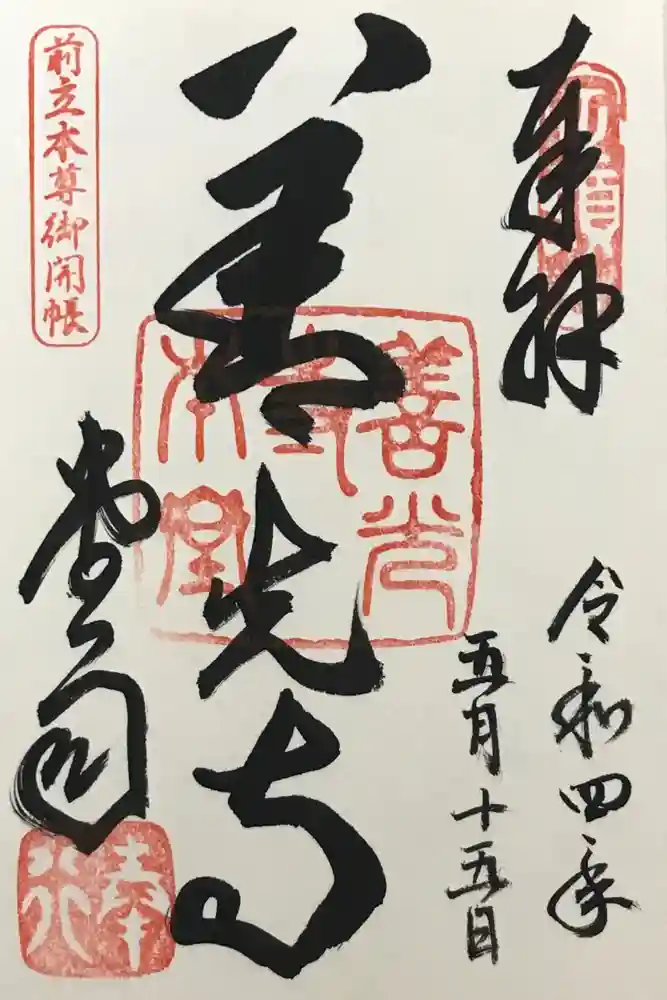 奉拝
令和四年
五月十五日
善光寺
善光
寺
本堂
堂司
前立本尊御開帳
奉行